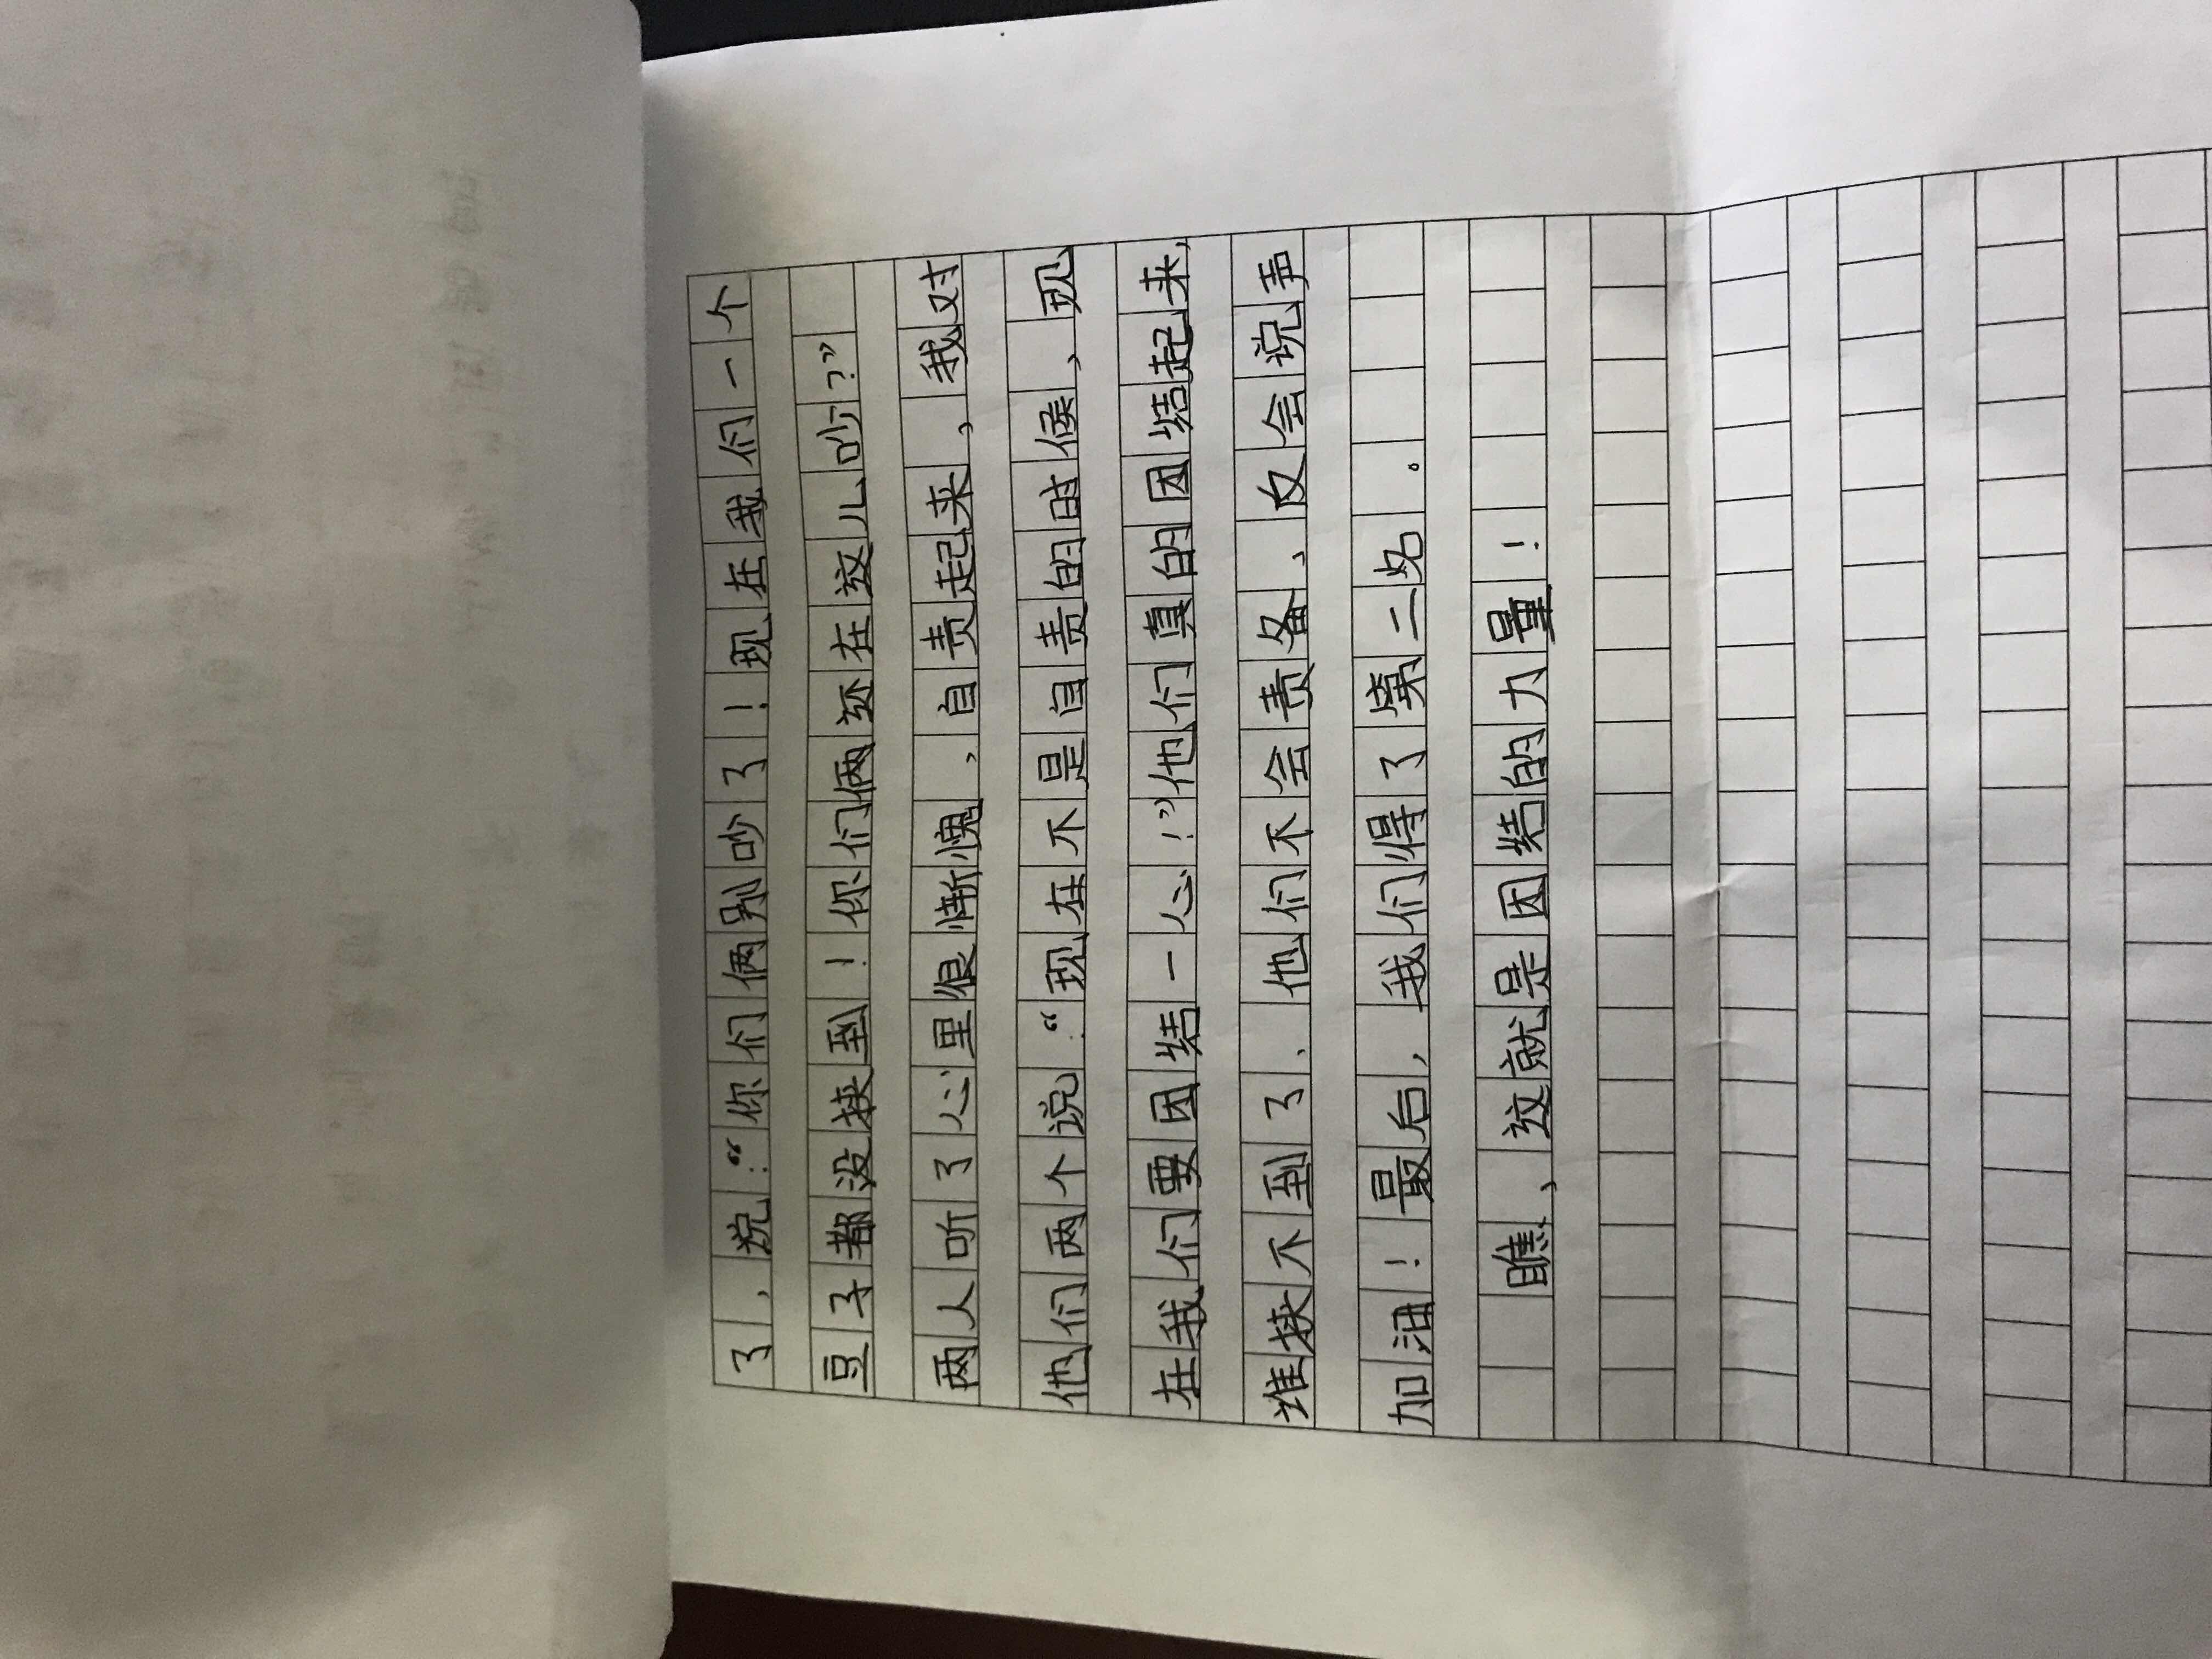 了，说：“你们俩别吵了！现在我们一个
豆子都没挟到！你们俩还在这儿吵？”
两人听了心里很惭愧，自责起来，我对
他们两个说：“现在不是自责的时候，现
在我们要因结一心！”他们真的因结起来，
谁挟不到了、他们不会责备、反会说声
加油！最后，我们得了第二名。
瞧、这就是因结的力量！